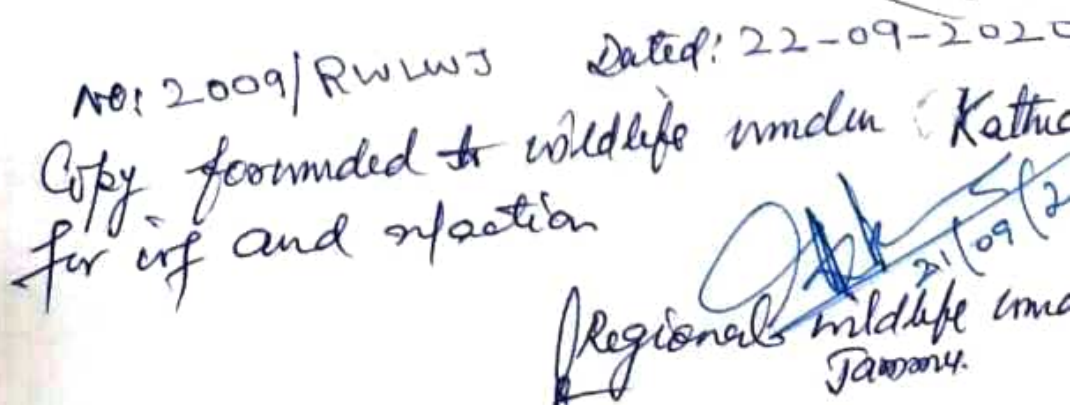 No: 2009/RWLWJ Dated: 22-09-2020
Copy forwarded to wildlife warden Kathua
for inf and n/action
21/09/2
Regional wildlife
Jammu.